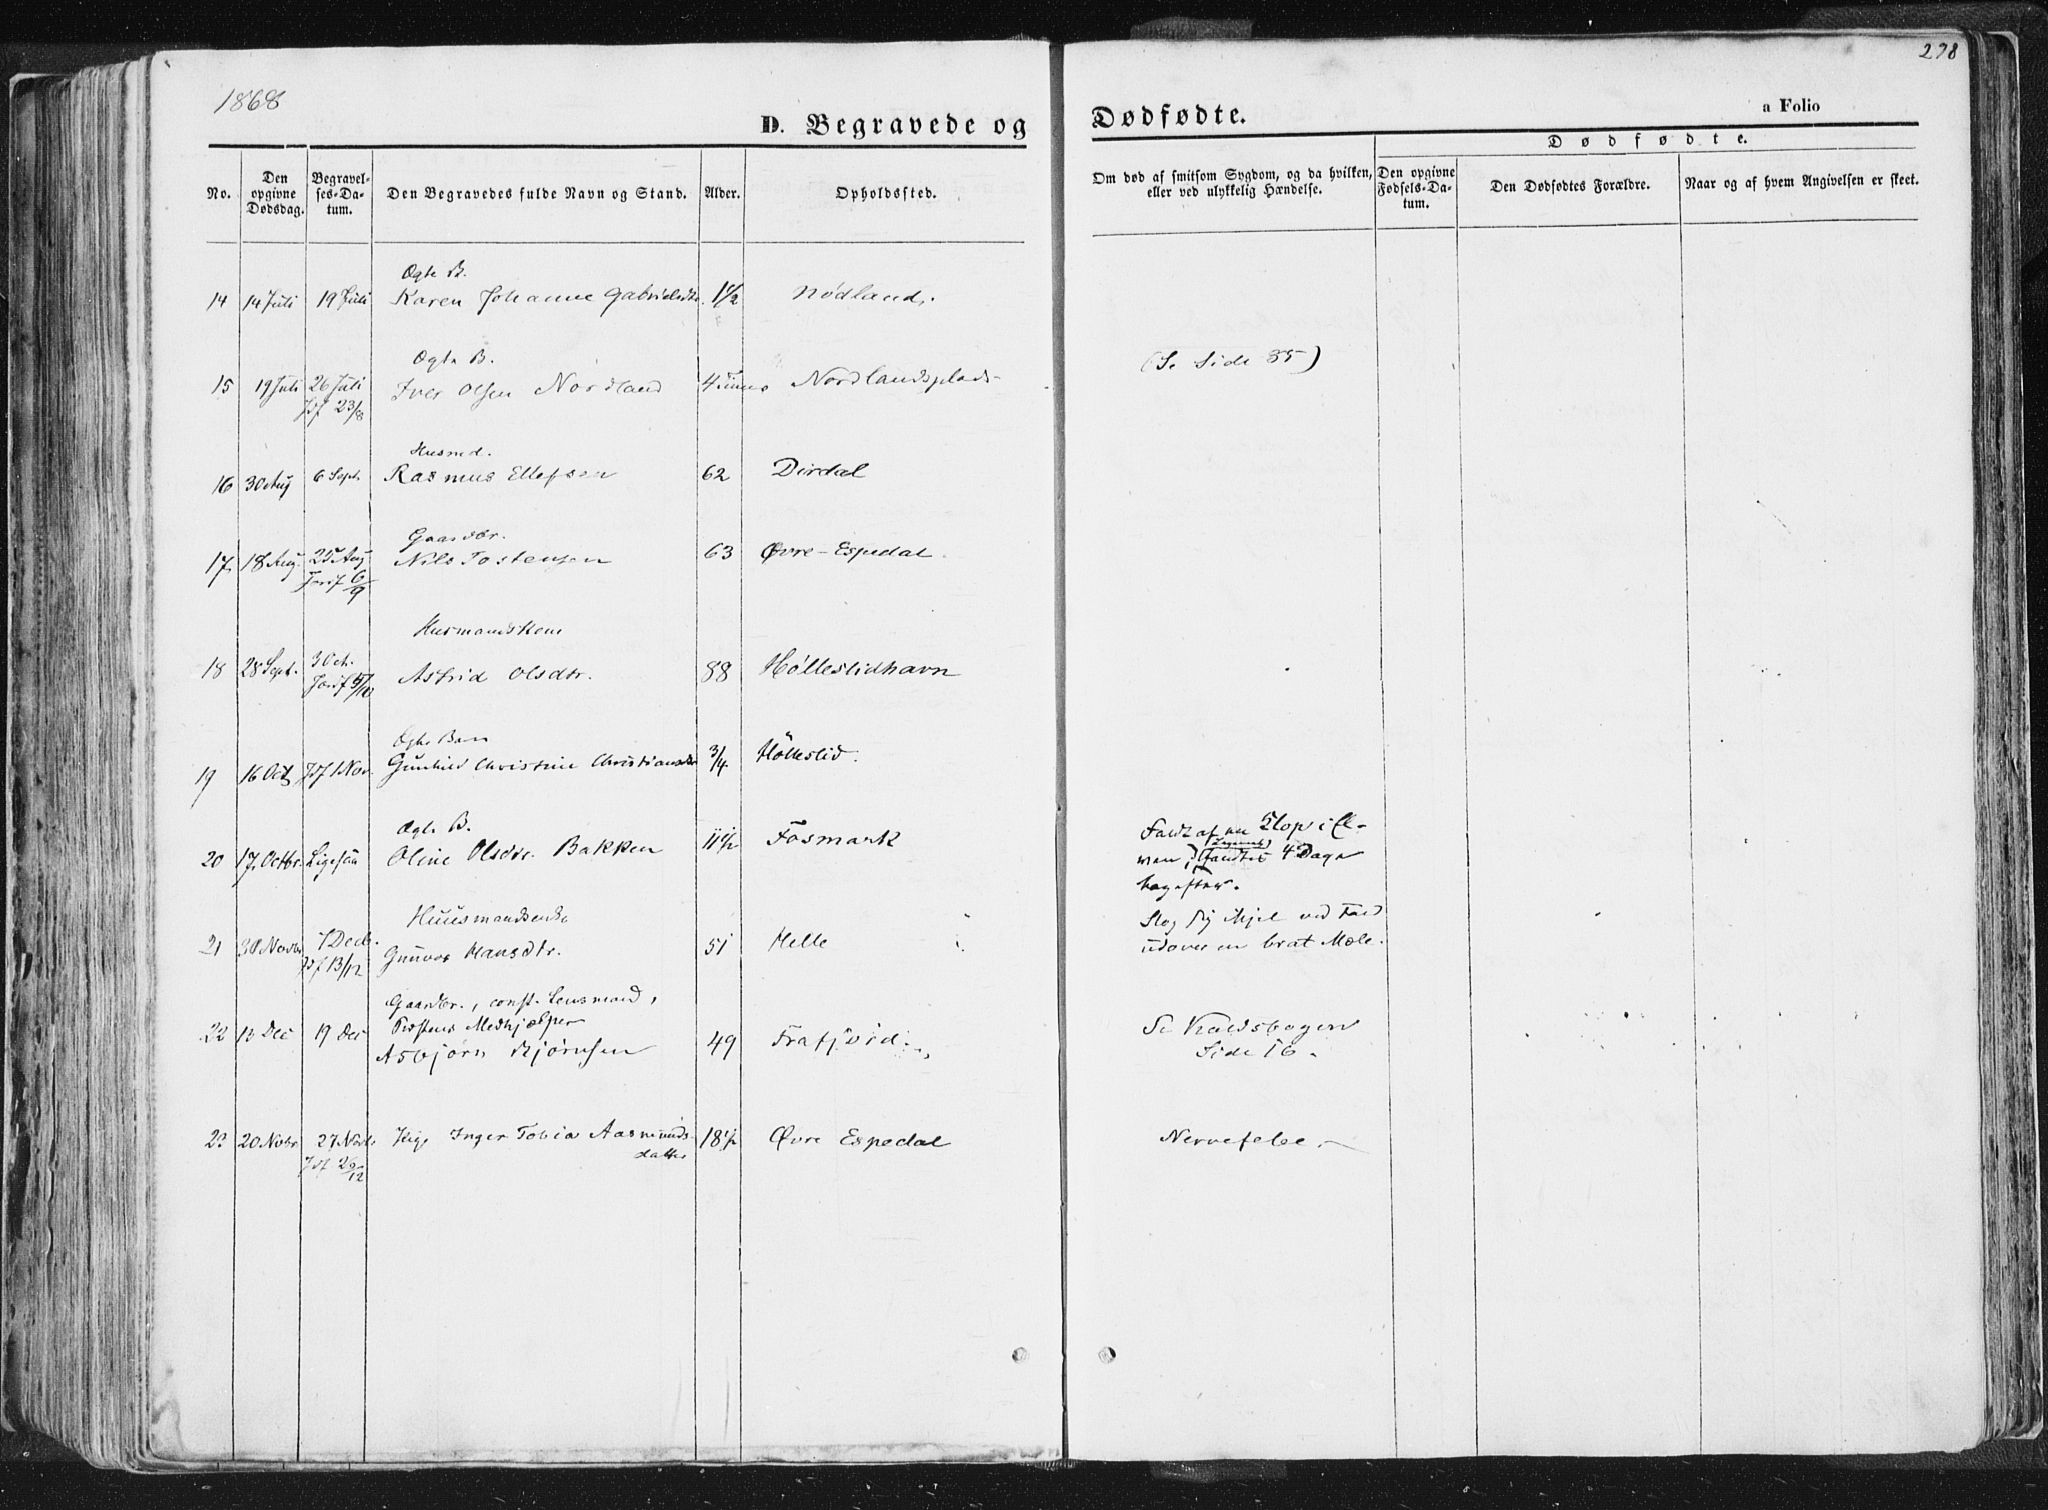 278
1868
D. Begravede og Dødfødte.
a Folio
No.
Den opgivne Dødsdag.
Begravelses-Datum.
Den Begravedes fulde Navn og Stand.
Alder.
Opholdssted.
Om død af smitsom Sygdom, og da hvilken, eller ved ulykkelig Hændelse.
Dødfødte.
Den opgivne Fødsels-Datum.
Den Dødfødtes Forældre.
Naar og af hvem Angivelsen er skeet.
Ægte B.
14 14 Juli 19 Juli Karen Johanne Gabrielsdtr. 1 1/2 Nødland.
Ægte B. (Se Side 35)
15 19 Juli 26 Juli Iver Olsen Nordland 4 Nordlandsplads
Jdf 23/8
Husmd.
16 30 Aug 6 Sept. Rasmus Ellefsen 62 Dirdal
Gaardbr.
17. 18 Aug. 25 Aug Nils Tostensen 63 Øvre-Espedal.
Jordf 6/9
Husmandskone
18 28 Sept. 3 Oct. Astrid Olsdtr. 88 Hølleslidhavn
Jordf
Ægte Barn
19 16 Oct Jdf 1 Nov. Gunhild Christine Christiansdtr 3/4 Hölleslid.
Ægte B.
20 17. Octbr. Ligesaa Oline Olsdtr. Bakken 11 1/2 Fosmark
Faldt af en Klop i Elven; 4 Dage
bagefter.
Huusmandsenke
21 30 Novbr 7 Decb. Gunvor Hansdtr. 51 Helle
Slog sig ihjel ved Fald
udover en brat Mæle.
Jdf 13/12
Gaardbr., const. Lensmand,
Præstens Medhjælper
22 13 Dec 19 Dec Asbjørn Bjørnsen 49 Frafjord.
Se Kaldsbogen
Side 16.
23 20 Novbr 27 Novb. Pige Inger Tobia Aasmundsdatter 18 1/2 Øvre Espedal Nervefeber
Jdf 26/12